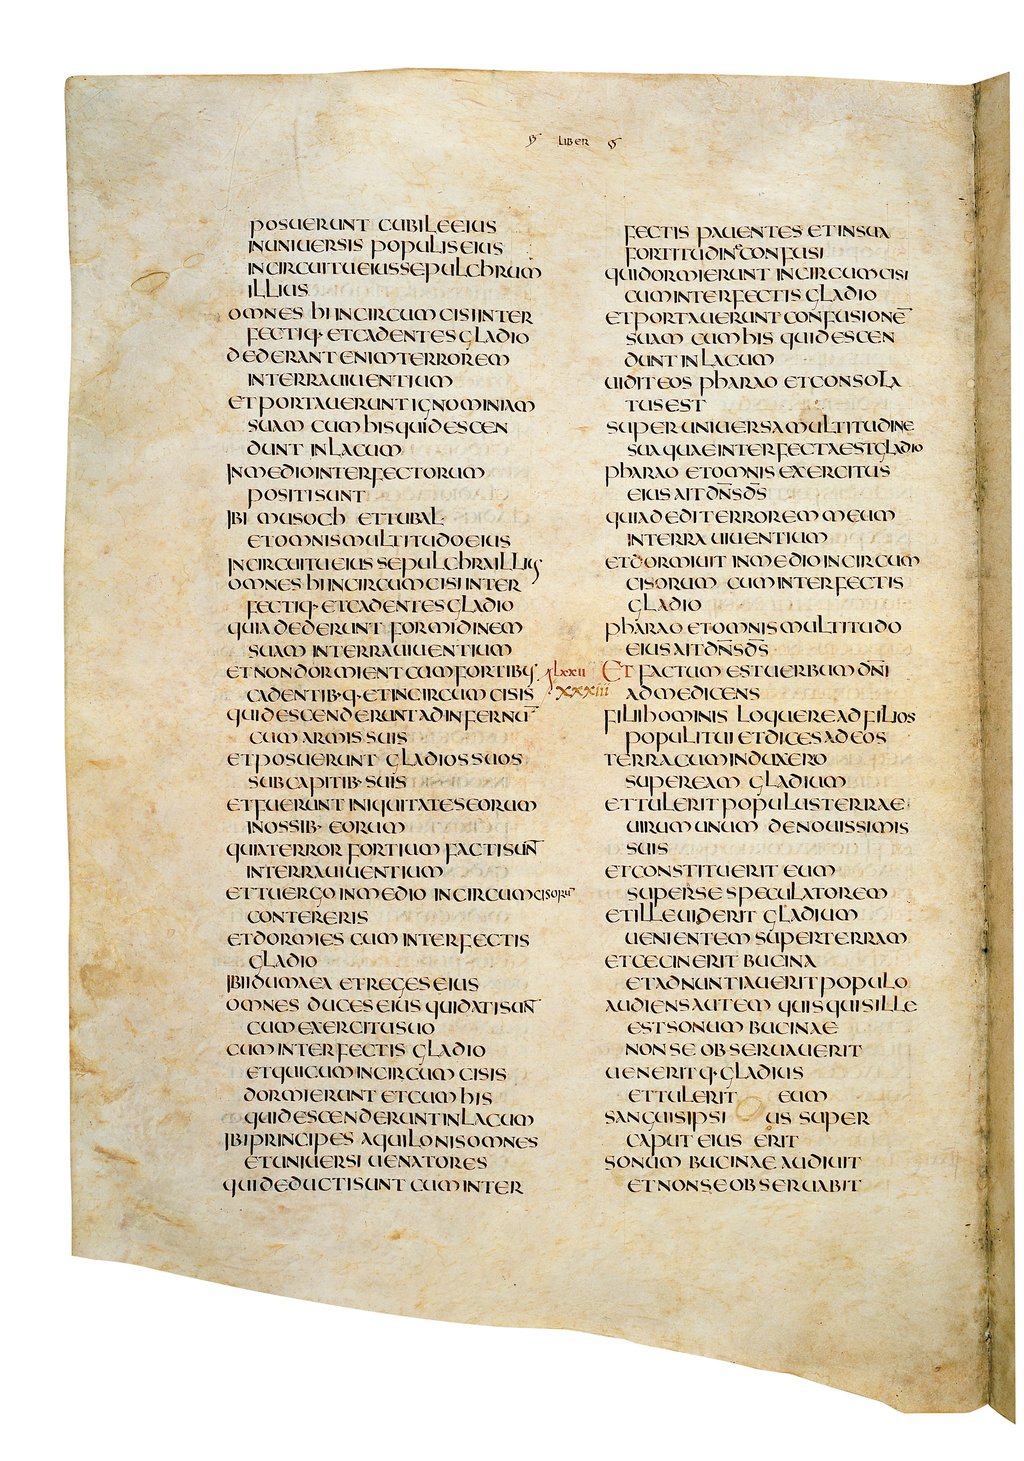 LIBER
POSUERUNT CUBILE EIUS
IN UNIUERSIS POPULIS EIUS
IN CIRCUITU EIUS SEPULCHRUM
ILLIUS
OMNES HI INCIRCUMCISI INTER
FECTIQ· ET CADENTES GLADIO
DEDERANT ENIM TERROREM
IN TERRA UIUENTIUM
ET PORTAUERUNT IGNOMINIAM
SUAM CUM HIS QUI DESCEN
DUNT IN LACUM
IN MEDIO INTERFECTORUM
POSITI SUNT
IBI MUSOCH ET TUBAL
ET OMNIS MULTITUDO EIUS
IN CIRCUITU EIUS SEPULCHRA ILLIUS
OMNES HI INCIRCUMCISI INTER
FECTIQ· ET CADENTES GLADIO
QUIA DEDERUNT FORMIDINEM
SUAM IN TERRA UIUENTIUM
ET NON DORMIENT CUM FORTIBUS
CADENTIB·Q· ET INCIRCUMCISIS
QUI DESCENDERUNT AD INFERNU̅
CUM ARMIS SUIS
ET POSUERUNT GLADIOS SUOS
SUB CAPITIB· SUIS
ET FUERUNT INIQUITATES EORUM
IN OSSIB· EORUM
QUIA TERROR FORTIUM FACTI SUN̅
IN TERRA UIUENTIUM
ET TU ERGO IN MEDIO INCIRCUMCISORU̅
CONTERERIS
ET DORMIES CUM INTERFECTIS
GLADIO
IBI IDUMAEA ET REGES EIUS
OMNES DUCES EIUS QUI DATI SUN̅
CUM EXERCITU SUO
CUM INTERFECTIS GLADIO
ET QUI CUM INCIRCUMCISIS
DORMIERUNT ET CUM HIS
QUI DESCENDERUNT IN LACUM
IBI PRINCIPES AQUILONIS OMNES
ET UNIUERSI UENATORES
QUI DEDUCTI SUNT CUM INTER
FECTIS PAUENTES ET IN SUA
FORTITUDINE CONFUSI
QUI DORMIERUNT INCIRCUMCISI
CUM INTERFECTIS GLADIO
ET PORTAUERUNT CONFUSIONE̅
SUAM CUM HIS QUI DESCEN
DUNT IN LACUM
UIDIT EOS PHARAO ET CONSOLA
TUS EST
SUPER UNIUERSA MULTITUDINE
SUA QUAE INTERFECTA EST GLADIO
PHARAO ET OMNIS EXERCITUS
EIUS AIT DN̅S D̅S
QUIA DEDI TERROREM MEUM
IN TERRA UIUENTIUM
ET DORMIUIT IN MEDIO INCIRCUM
CISORUM CUM INTERFECTIS
GLADIO
PHARAO ET OMNIS MULTITUDO
EIUS AIT DN̅S D̅S
LXXII ET FACTUM EST UERBUM DN̅I
XXXIII AD ME DICENS
FILI HOMINIS LOQUERE AD FILIOS
POPULI TUI ET DICES AD EOS
TERRA CUM INDUXERO
SUPER EAM GLADIUM
ET TULERIT POPULUS TERRAE
UIRUM UNUM DE NOUISSIMIS
SUIS
ET CONSTITUERIT EUM
SUPER SE SPECULATOREM
ET ILLE UIDERIT GLADIUM
UENIENTEM SUPER TERRAM
ET CECINERIT BUCINA
ET ADNUNTIAUERIT POPULO
AUDIENS AUTEM QUISQUIS ILLE
EST SONUM BUCINAE
NON SE OBSERUAUERIT
UENERITQ· GLADIUS
ET TULERIT EUM
SANGUIS IPSIUS SUPER
CAPUT EIUS ERIT
SONUM BUCINAE AUDIUIT
ET NON SE OBSERUABIT